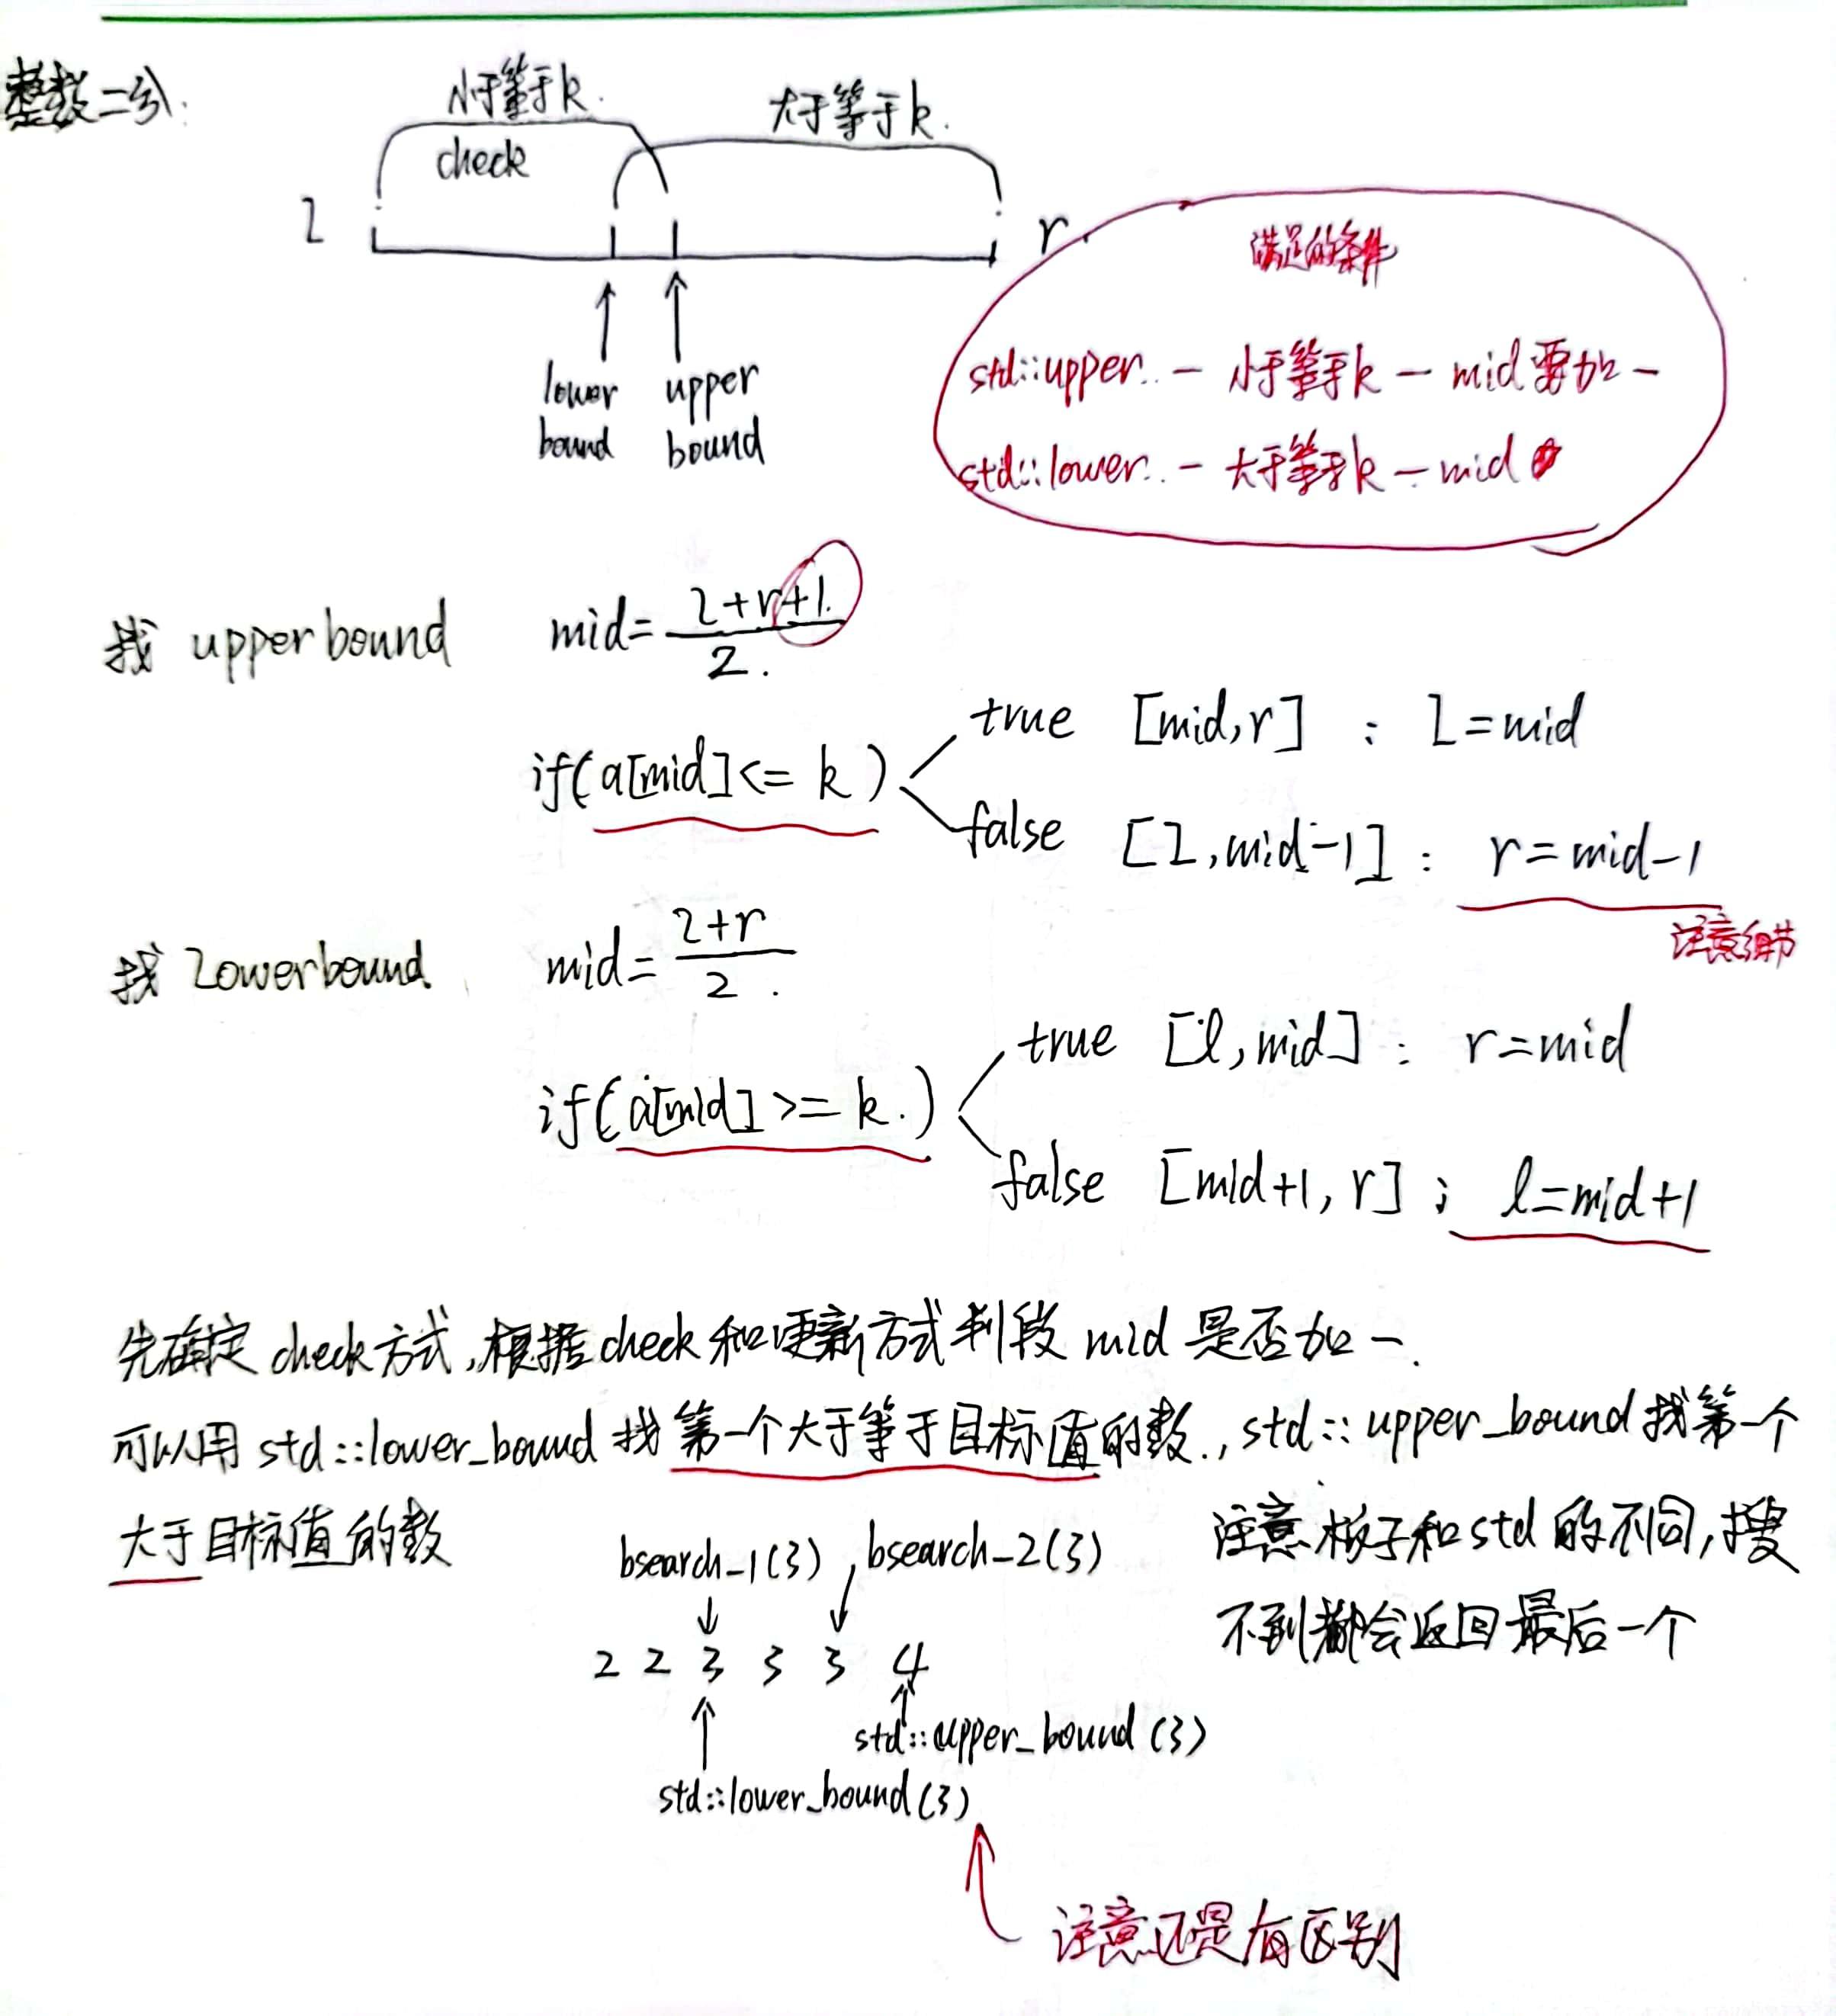 整数二分:
小于等于k.
大于等于k.
check
l
r.
lower
bound
upper
bound
满足的条件
std::upper.. — 小于等于k — mid要加一
std::lower.. — 大于等于k — mid
找 upper bound
mid= l+r+1. / 2.
if( a[mid]<= k )
true [mid,r] : l=mid
false [l,mid-1] : r=mid-1
注意细节
找 lowerbound
mid= l+r / 2.
if( a[mid] >= k. )
true [l,mid] : r=mid
false [mid+1, r] ; l=mid+1
先确定 check 方式,根据 check 和更新方式判段 mid 是否加一.
可以用 std::lower_bound 找 第一个大于等于目标值的数., std::upper_bound 找第一个
大于目标值的数
注意板子和std的不同,搜
不到都会返回最后一个
bsearch_1(3) bsearch_2(3)
2 2 3 3 3 4
std::upper_bound (3)
std::lower_bound(3)
注意还是有区别